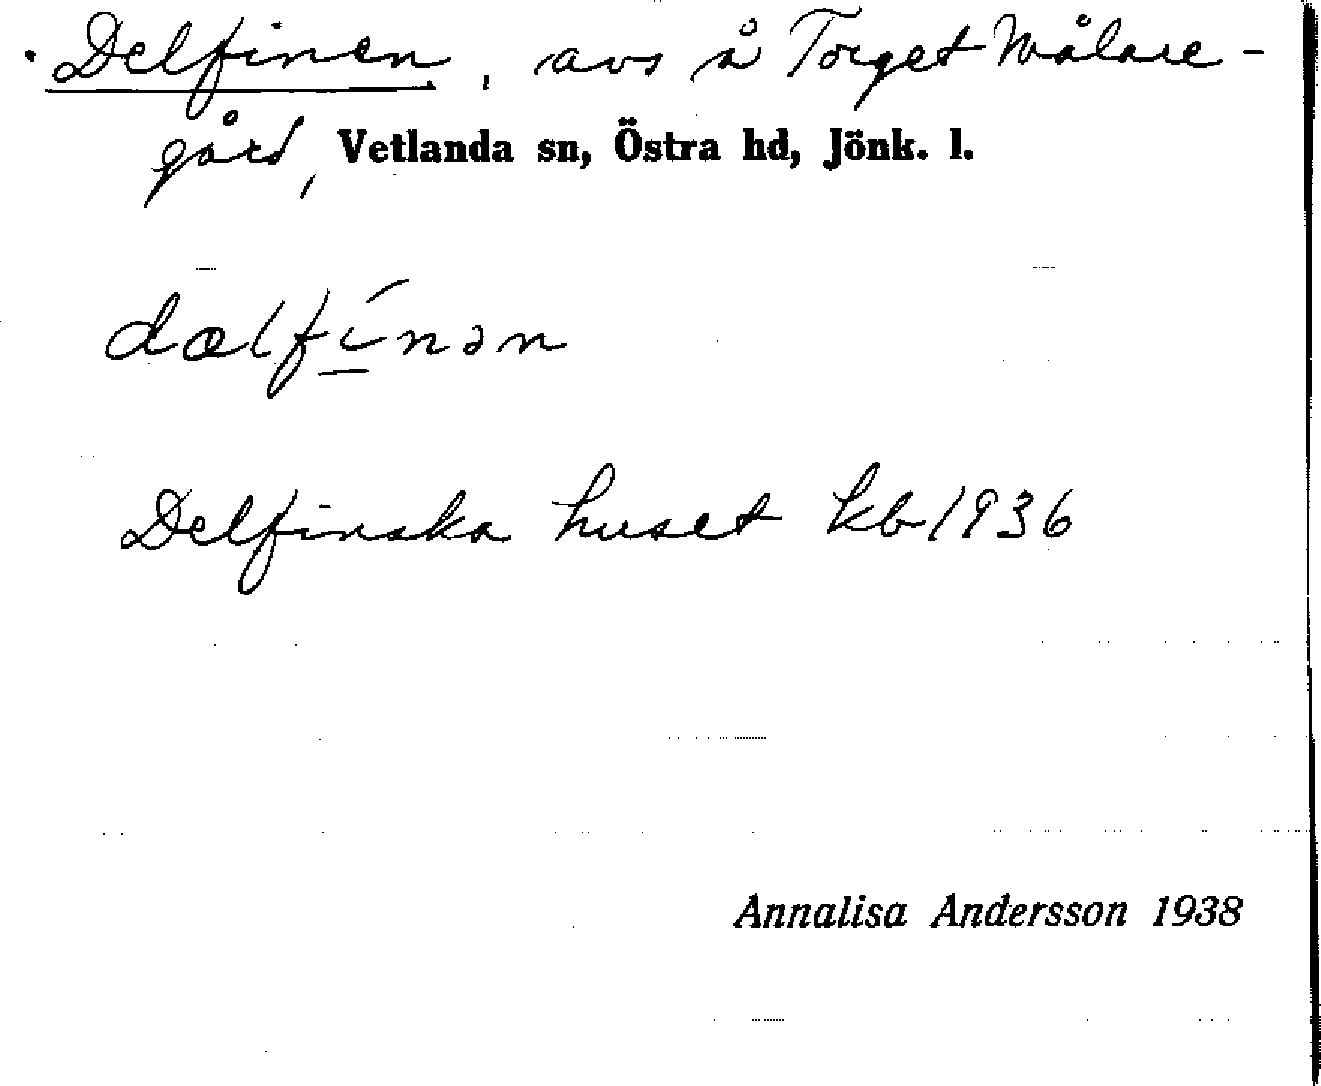 Delfinen, avs å Torget Målare-
gård, Vetlanda sn, Östra hd, Jönk. l.
dælfí̱nən
Delfinska huset kb 1936
Annalisa Andersson 1938